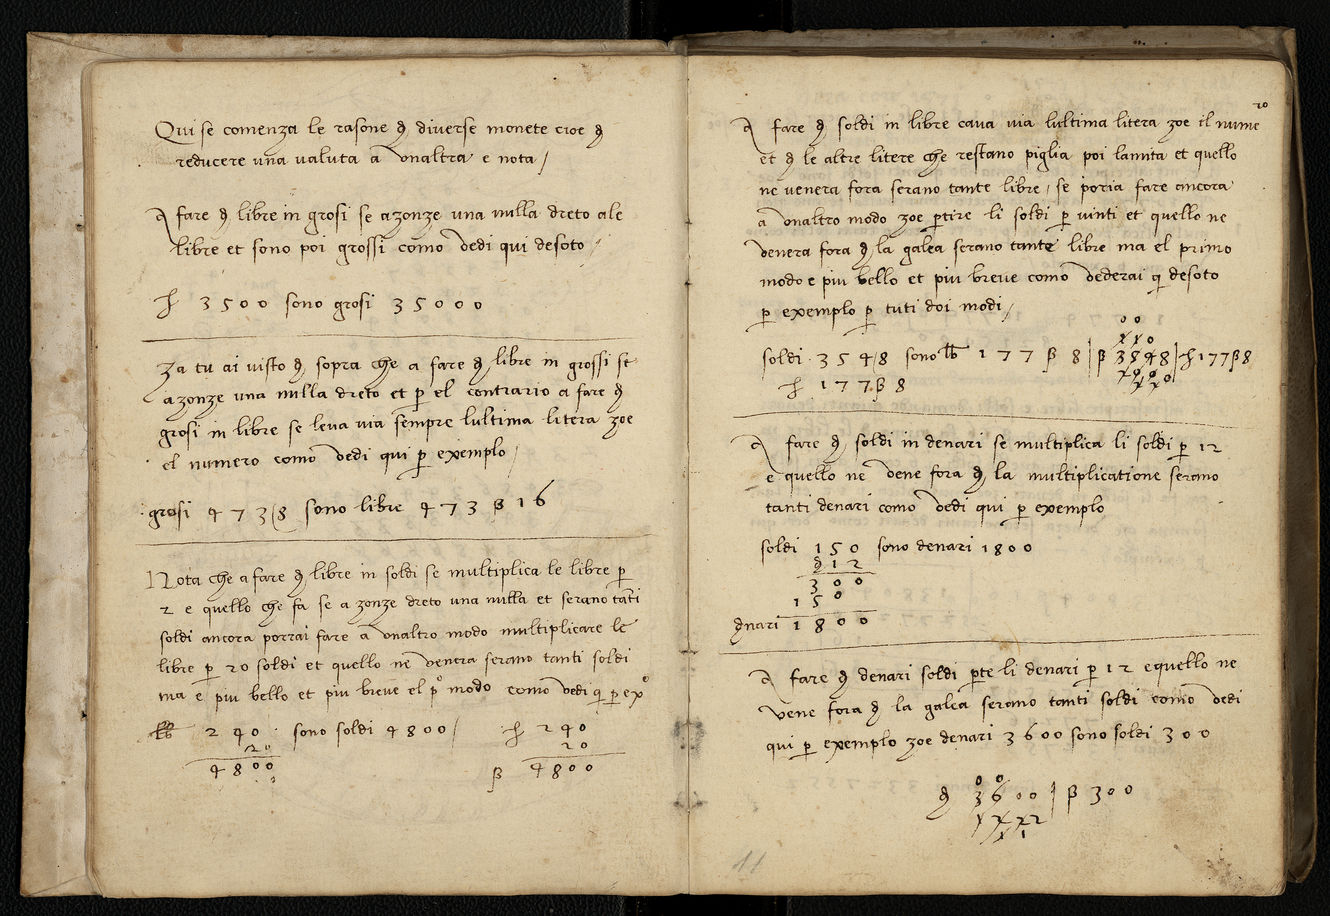 Qui se comenza le rasone đ diverse monete cioe đ
reducere una valuta a unaltra e nota /
A fare đ libre in grosi se azonze una nulla dreto ale
libre et sono poi grossi como vedi qui desoto /
3500 sono grosi 35000
Za tu ai visto đ sopra che a fare đ libre in grossi se
azonze una nulla dreto et p el contrario a fare đ
grosi in libre se leva via sempre lultima litera zoe
el numero como vedi qui p exemplo /
grosi 473/8 sono libre 473 ß 16
Nota che a fare đ libre in soldi se multiplica le libre p
2 e quello che fa se azonze dreto una nulla et serano tāti
soldi ancora porrai fare a unaltro modo multiplicare le
libre p 20 soldi et quello ne venera serano tanti soldi
ma e piu bello et piu breve el pº modo como vedi q p exº
lb 240 sono soldi 4800 / 240
20 20
4800 ß 4800
20
A fare đ soldi in libre cava via lultima litera zoe il nume
et đ le altre litere che restano piglia poi lamita et quello
ne venera fora serano tante libre / se poria fare ancora
a unaltro modo zoe ptire li soldi p vinti et quello ne
venera fora đ la galea serano tante libre ma el primo
modo e piu bello et piu breve como vederai q desoto
p exemplo p tuti doi modi /
00
110
soldi 354/8 sono lb 177 ß 8 | ß 3548 | 177 ß 8
177 ß 8
A fare đ soldi in denari se multiplica li soldi p 12
e quello ne vene fora đ la multiplicatione serano
tanti denari como vedi qui p exemplo
soldi 150 sono denari 1800
đ 12
300
150
đnari 1800
A fare đ denari soldi pte li denari p 12 e quello ne
vene fora đ la galea serano tanti soldi como vedi
qui p exemplo zoe denari 3600 sono soldi 300
00
đ 3600 | ß 300
1222
11
11